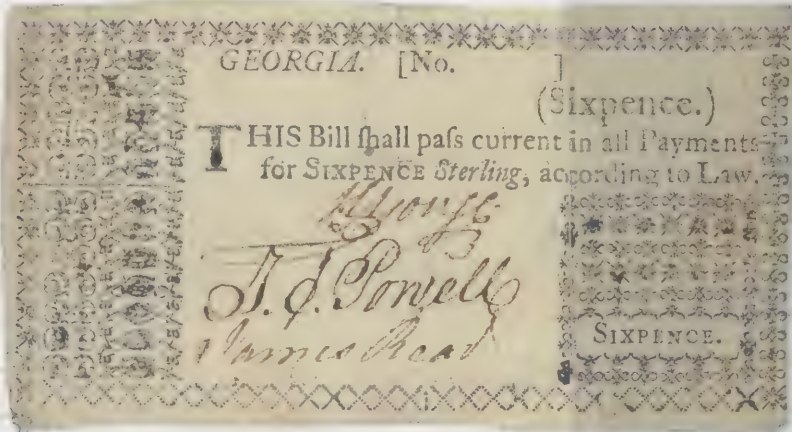 GEORGIA. [No. ]
(Sixpence.)
THIS Bill ſhall paſs current in all Payments
for SIXPENCE Sterling, according to Law.
J. E. Powell
James Read
SIXPENCE.